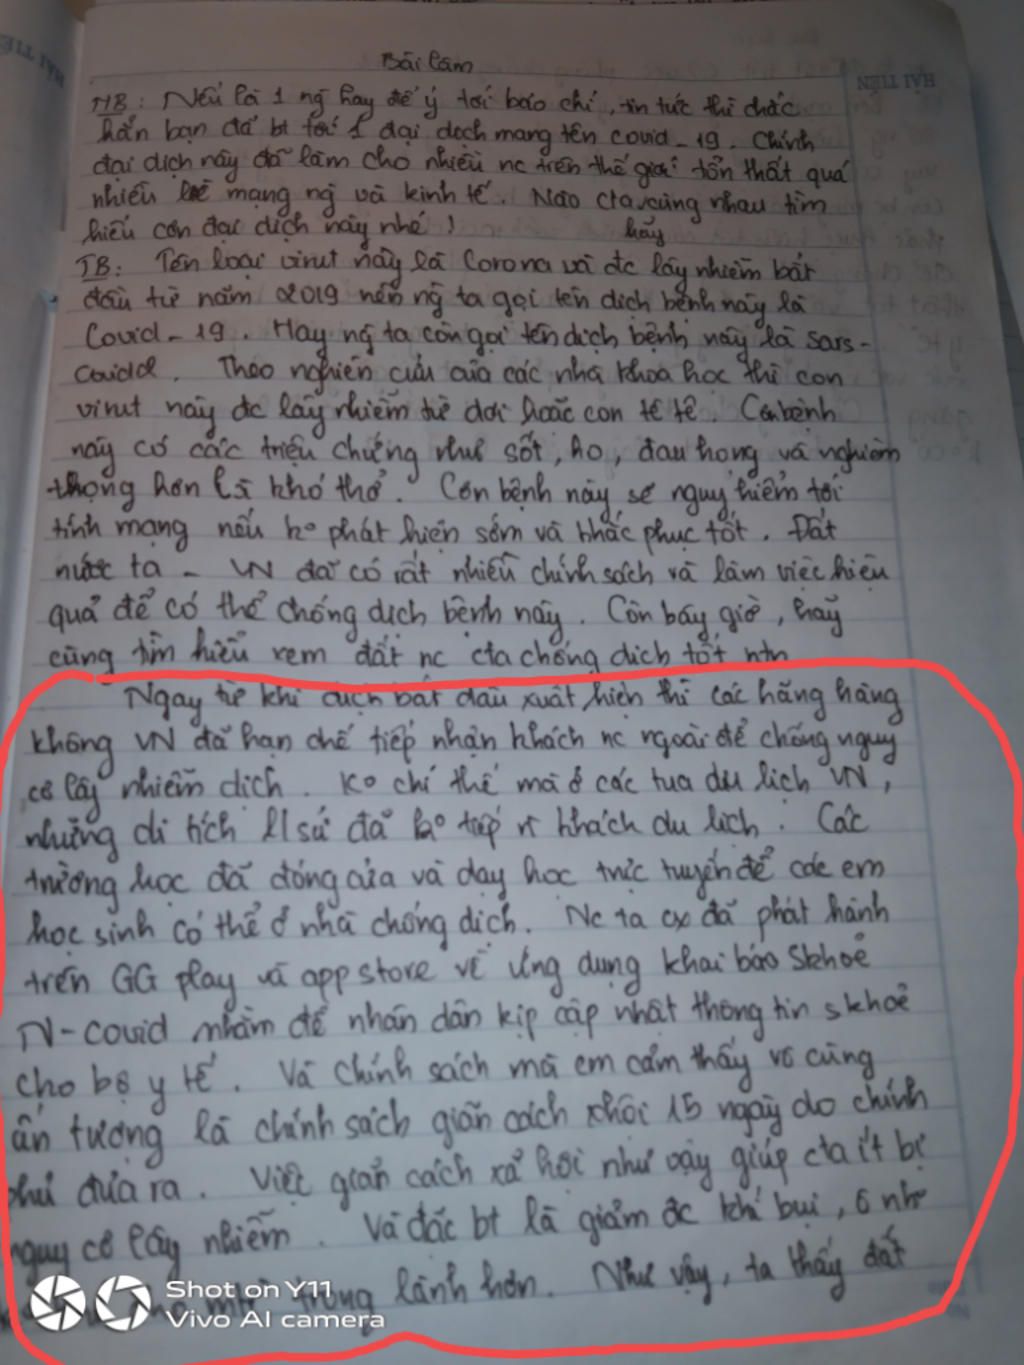 Bài làm
HẢI TIẾN
MB: Nếu là 1 ng hay để ý tới báo chí, tin tức thì chắc
hẳn bạn đã bt tới 1 đại dịch mang tên covid-19. Chính
đại dịch này đã làm cho nhiều nc trên thế giới tổn thất quá
nhiều về mạng ng và kinh tế. Nào cta cùng nhau tìm
hiểu cơn đại dịch này nhé! hãy
TB: Tên loại virut này là Corona và đc lây nhiễm bắt
đầu từ năm 2019 nên ng ta gọi tên dịch bệnh này là
Covid-19. Hay ng ta còn gọi tên dịch bệnh này là sars-
covid2. Theo nghiên cứu của các nhà khoa học thì con
virut này đc lây nhiễm từ dơi hoặc con tê tê. Căn bệnh
này có các triệu chứng như sốt, ho, đau họng và nghiêm
trọng hơn là khó thở. Cơn bệnh này sẽ nguy hiểm tới
tính mạng nếu ko phát hiện sớm và khắc phục tốt. Đất
nước ta - VN đã có rất nhiều chính sách và làm việc hiệu
quả để có thể chống dịch bệnh này. Còn bây giờ, hãy
cùng tìm hiểu xem đất nc cta chống dịch tốt ntn
Ngay từ khi dịch bắt đầu xuất hiện thì các hãng hàng
không VN đã hạn chế tiếp nhận khách nc ngoài để chống nguy
cơ lây nhiễm dịch. Ko chỉ thế mà ở các tua du lịch VN,
những di tích lịch sử đã ko tiếp khách du lịch. Các
trường học đã đóng cửa và dạy học trực tuyến để các em
học sinh có thể ở nhà chống dịch. Nc ta cx đã phát hành
trên GG play và app store về ứng dụng khai báo skhoẻ
N-covid nhằm để nhân dân kịp cập nhật thông tin skhoẻ
cho bộ y tế. Và chính sách mà em cảm thấy vô cùng
ấn tượng là chính sách giãn cách xh 15 ngày do chính
phủ đưa ra. Việc giãn cách xã hội như vậy giúp cta ít bị
nguy cơ lây nhiễm. Và đặc bt là giảm đc khí bụi, ô nh
trong lành hơn. Như vậy, ta thấy đất
Shot on Y11
Vivo AI camera